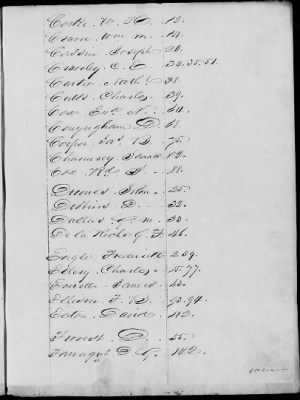 Cocke. W. H. 12.
Crane. Wm M. 14.
Cassin. Joseph. 20.
Crosby. C. E. 34.35.51.
Carter. Nath. 38.
Cutts. Charles. 39.
Cox. N. 54.
Conyngham. D. 68.
Cooper. Jas. B. 75.
Chauncey Isaac 82.
Cox. A. 88.
Downes. John. 25.
Dobbins. D. 32.
Dallas A. M. 33.
De la Roche G. F. 46.
Engle Frederick 2.59.
Ellery. Charles. 15.77.
Everett. James.
Ellison. F. B. 93.94.
Eaton. David. 112.
Forrest. D. 55.
Farragut D. G. 142.